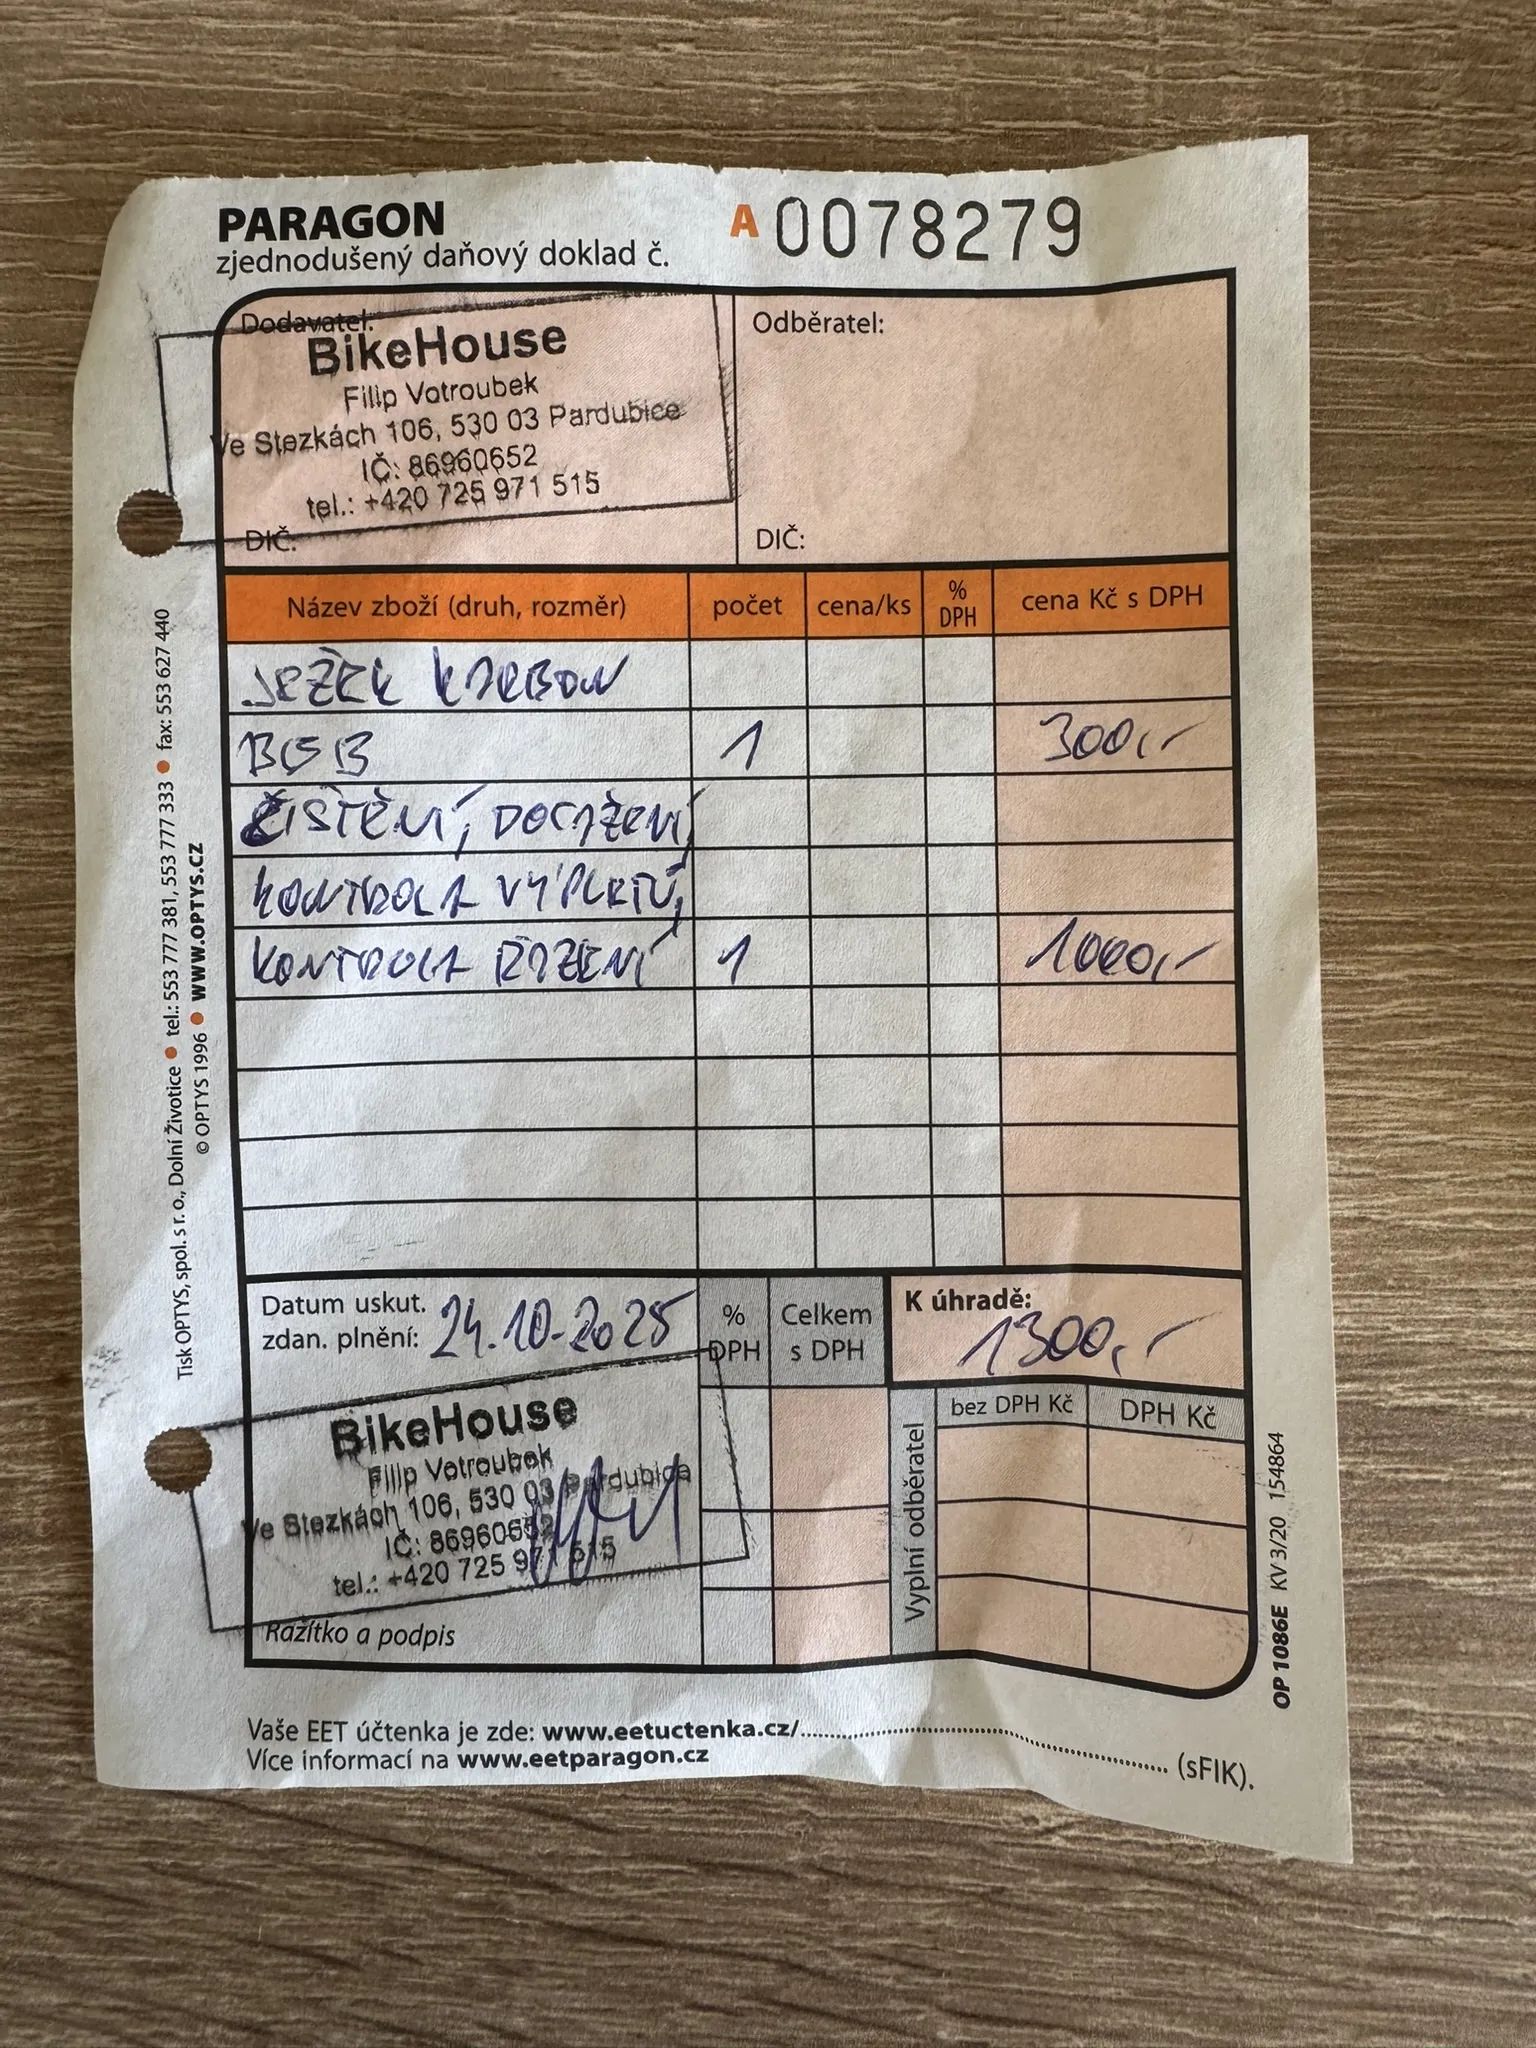 PARAGON
zjednodušený daňový doklad č.
A 0078279
Dodavatel:
BikeHouse
Filip Votroubek
Ve Stezkách 106, 530 03 Pardubice
IČ: 86960652
tel.: +420 725 971 515
DIČ:
Odběratel:
DIČ:
Název zboží (druh, rozměr) počet cena/ks % DPH cena Kč s DPH
JEŽEK KARBON
BSB 1 300,-
ČISTĚNÍ, DOTAŽENÍ,
KONTROLA VÝPLETŮ,
KONTROLA ŘAZENÍ 1 1000,-
Datum uskut.
zdan. plnění: 24.10.2025
% DPH
Celkem s DPH
K úhradě:
1300,-
Vyplní odběratel
bez DPH Kč DPH Kč
BikeHouse
Filip Votroubek
Ve Stezkách 106, 530 03 Pardubice
IČ: 86960652
tel.: +420 725 971 515
Razítko a podpis
Vaše EET účtenka je zde: www.eetuctenka.cz/
Více informací na www.eetparagon.cz (sFIK).
Tisk OPTYS, spol. s r. o., Dolní Životice • tel.: 553 777 381, 553 777 333 • fax: 553 627 440
© OPTYS 1996 • www.OPTYS.cz
OP 1086E KV 3/20 154864